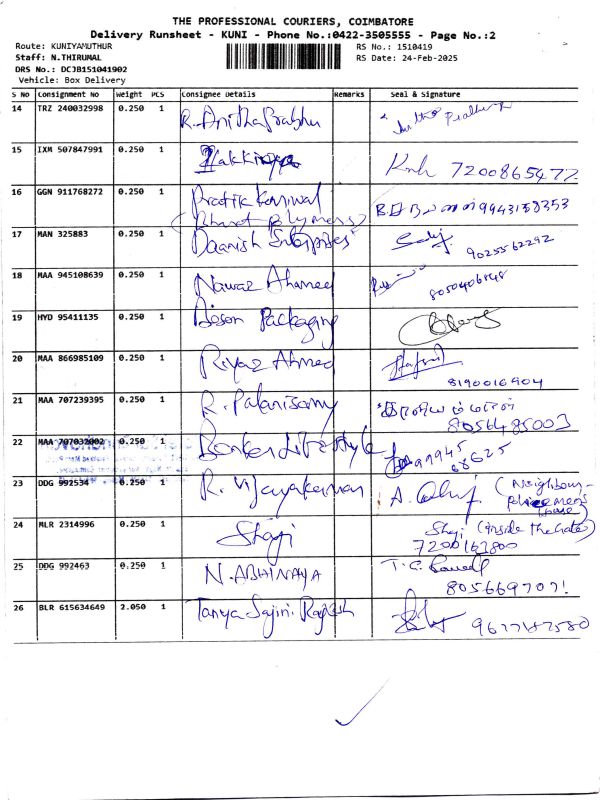 THE PROFESSIONAL COURIERS, COIMBATORE
Delivery Runsheet - KUNI - Phone No.:0422-3505555 - Page No.:2
Route: KUNIYAMUTHUR RS No.: 1510419
Staff: N.THIRUMAL RS Date: 24-Feb-2025
DRS No.: DCJB151041902
Vehicle: Box Delivery
S No Consignment No Weight PCS Consignee Details Remarks Seal & Signature
14 TRZ 240032998 0.250 1 R. Anitha Prabhu
15 IXM 507847991 0.250 1 7200865477
16 GGN 911768272 0.250 1 Pratik Kaniwal 9943158353
(Bharat Polymers)
17 MAN 325883 0.250 1 Daanish Enterprises 9025562292
18 MAA 945108639 0.250 1 Nawaz Ahamed
19 HYD 95411135 0.250 1 Bison Packaging
20 MAA 866985109 0.250 1 Riyaz Ahmed
8190016904
21 MAA 707239395 0.250 1 R. Palanisamy
8056485003
22 MAA 707032002 0.250 1 99945
68625
23 DDG 992534 0.250 1 R. Vijayakumar A. (Neighbour-
24 MLR 2314996 0.250 1 Shaji Shaji (inside the Gate)
7200163800
25 DDG 992463 0.250 1 N. ABHINAYA T. G.
26 BLR 615634649 2.050 1 Tanya Sajini Rajesh